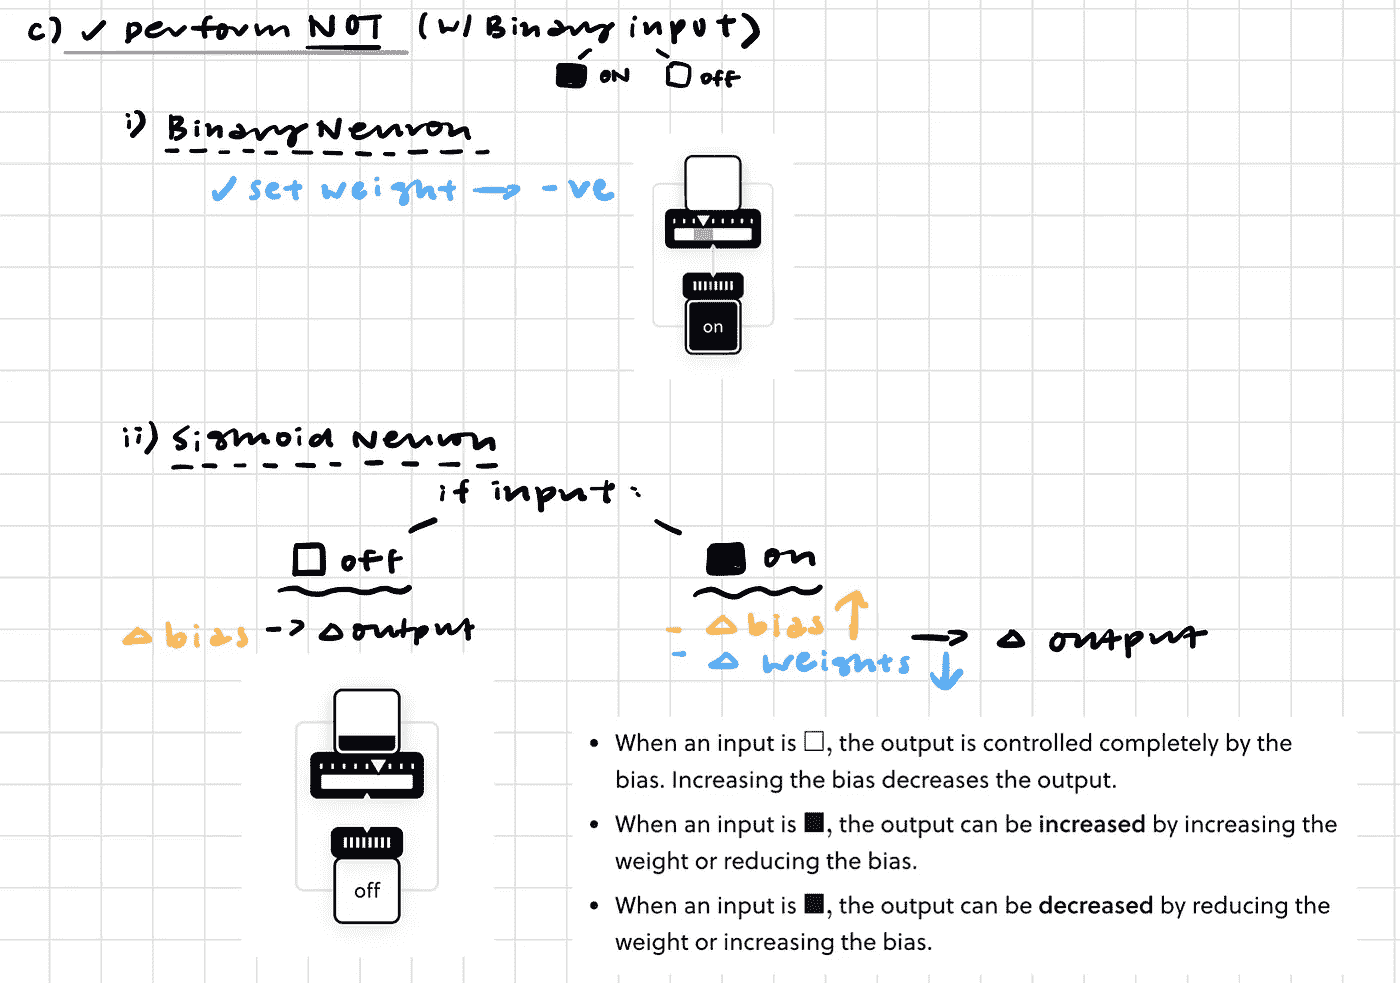 c) ✓ perform NOT (w/ Binary input)
■ ON □ off
i) Binary Neuron
✓ set weight → -ve
on
ii) Sigmoid Neuron
if input:
□ off
■ on
Δ bias -> Δ output
- Δ bias ↑
- Δ weights ↓
→ Δ output
off
• When an input is □, the output is controlled completely by the
bias. Increasing the bias decreases the output.
• When an input is ■, the output can be increased by increasing the
weight or reducing the bias.
• When an input is ■, the output can be decreased by reducing the
weight or increasing the bias.